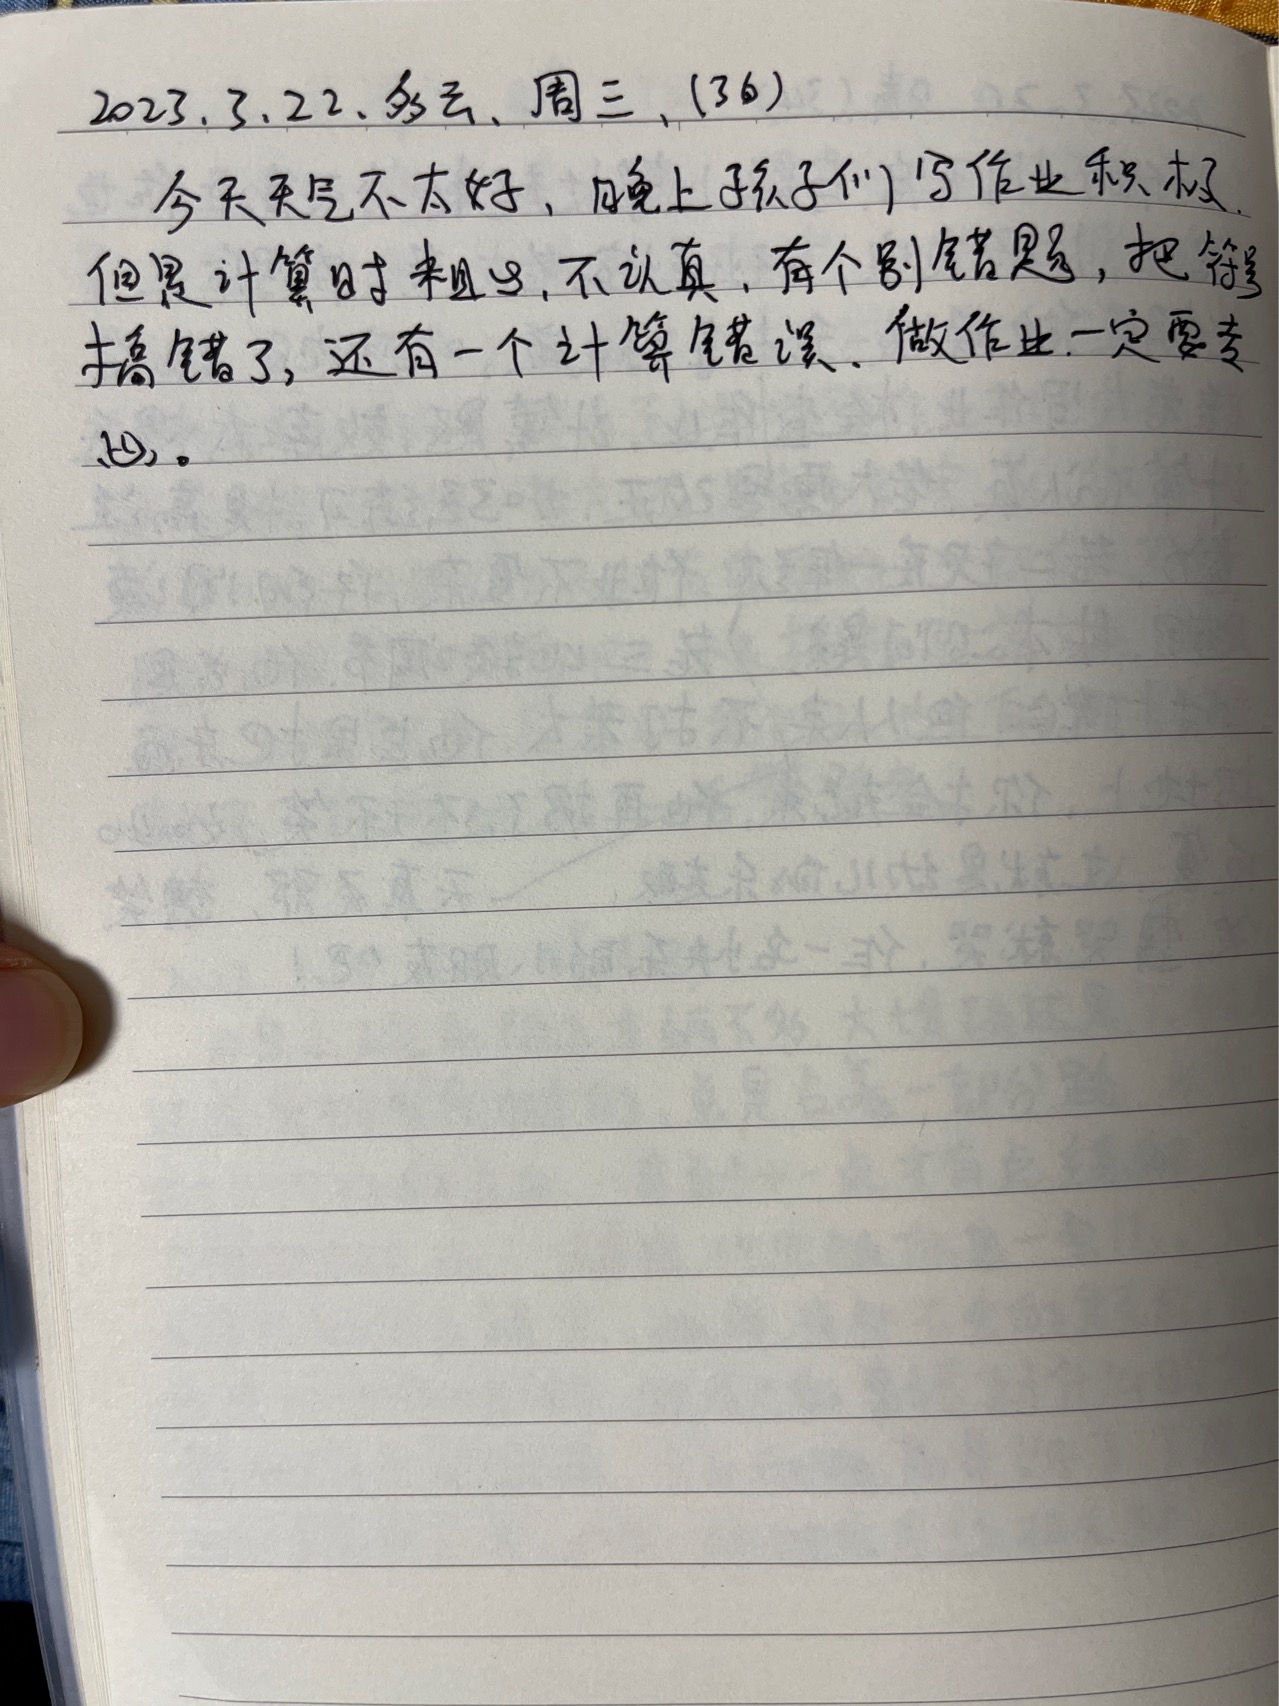 2023.3.22.多云、周三、(36)
今天天气不太好，晚上孩子们写作业积极.
但是计算时粗心.不认真.有个别错题，把符号
搞错了，还有一个计算错误.做作业一定要专
心。